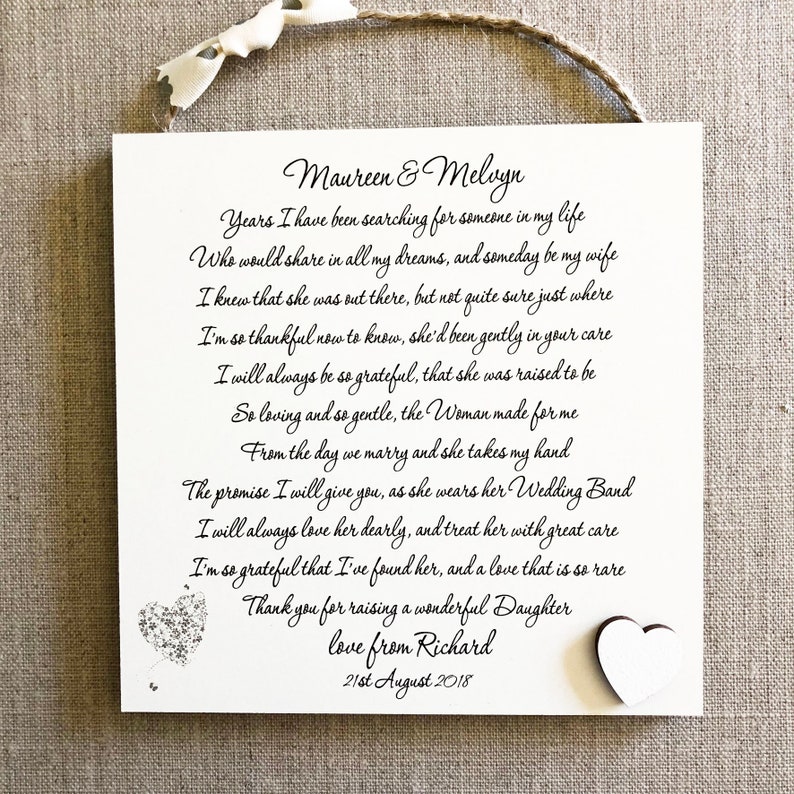 Maureen & Melvyn
Years I have been searching for someone in my life
Who would share in all my dreams, and someday be my wife
I knew that she was out there, but not quite sure just where
I'm so thankful now to know, she'd been gently in your care
I will always be so grateful, that she was raised to be
So loving and so gentle, the Woman made for me
From the day we marry and she takes my hand
The promise I will give you, as she wears her Wedding Band
I will always love her dearly, and treat her with great care
I'm so grateful that I've found her, and a love that is so rare
Thank you for raising a wonderful Daughter
love from Richard
21st August 2018